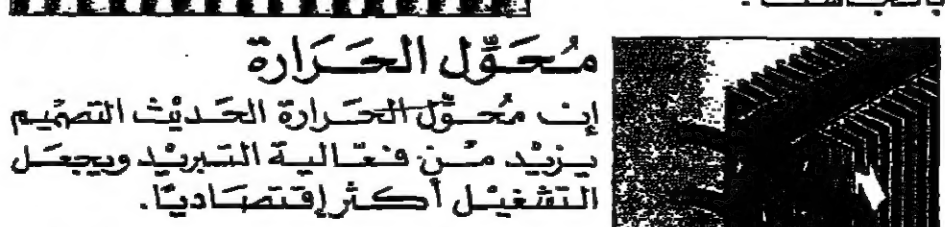 مُحَوِّل الحَرَارة
إن مُحَوِّل الحَرارة الحَديْث التصمِيم
يزيْد مِن فعّالية التبريْد ويجعَل
التشغيْل أكثر إقتصَاديًا.